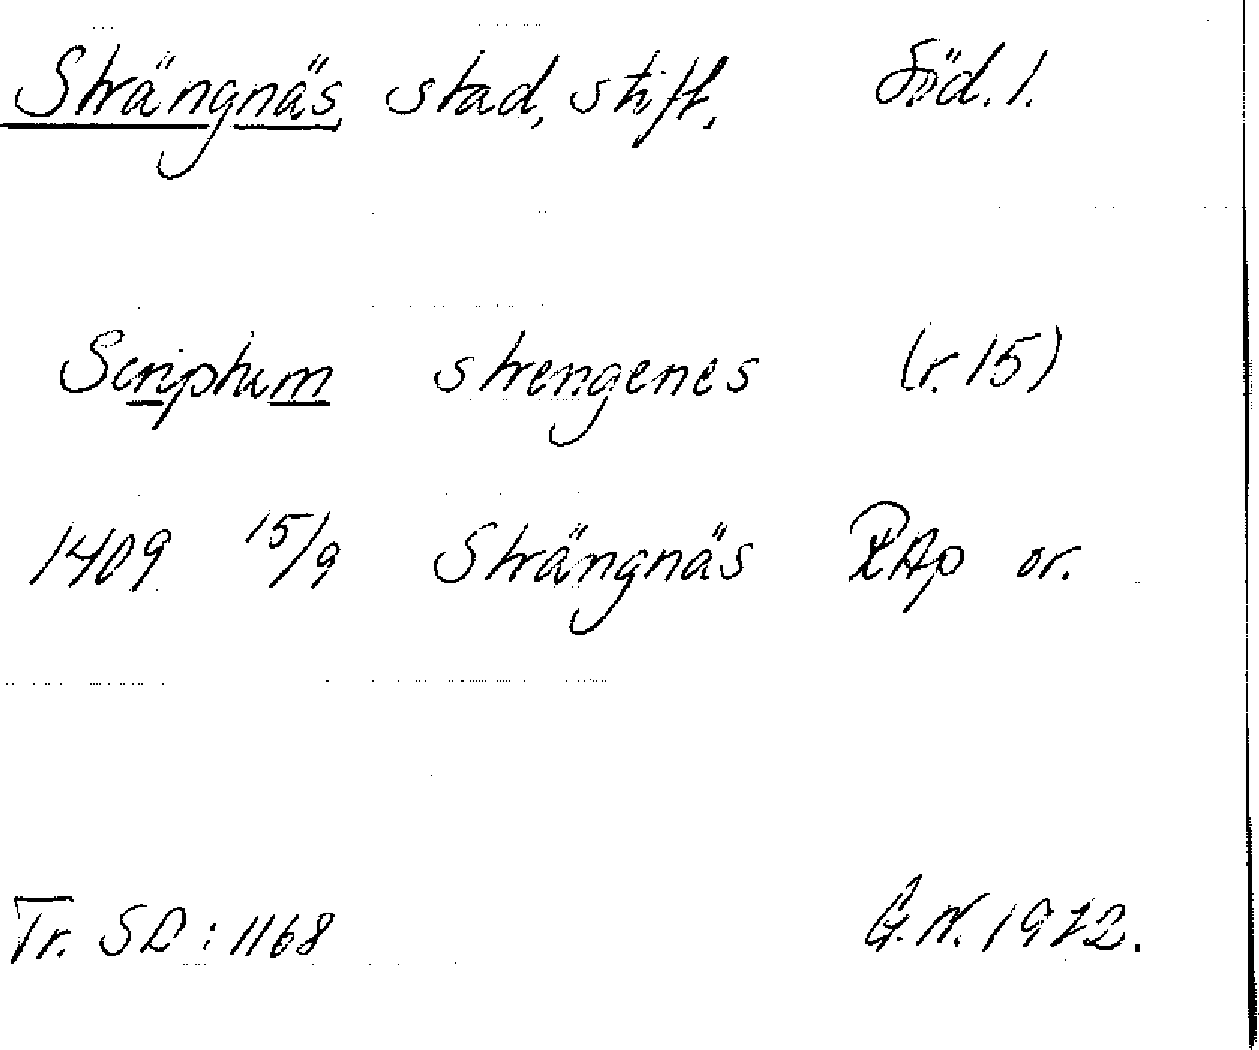 Strängnäs stad, stift, Söd. l.
Scriptum strengenes (r. 15)
1409 15/9 Strängnäs RAp or.
Tr. SD: 1168 G.N. 1972.